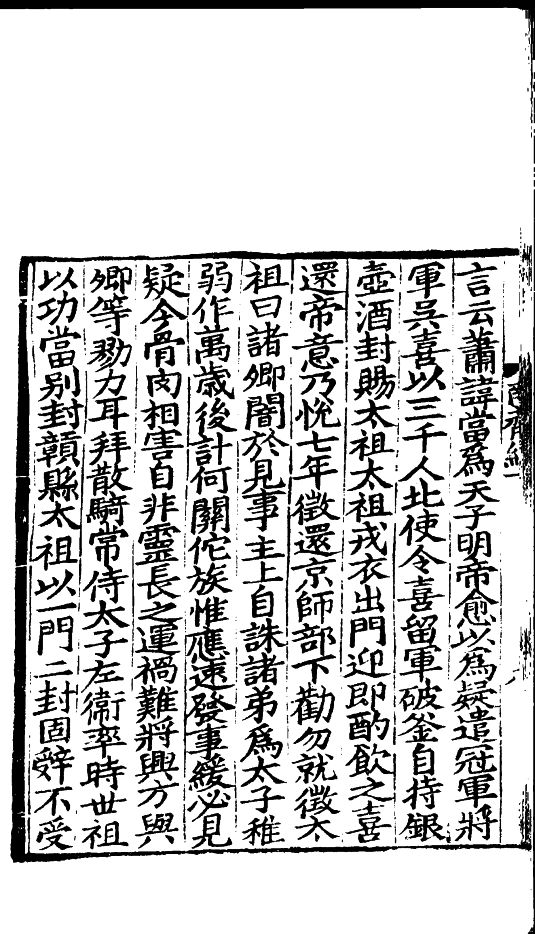 言云蕭諱當爲天子明帝愈以爲疑遣冠軍將
軍吳喜以三千人北使令喜留軍破釜自持銀
壺酒封賜太祖太祖戎衣出門迎即酌飲之喜
還帝意乃悅七年徵還京師部下勸勿就徵太
祖曰諸卿闇於見事主上自誅諸弟爲太子稚
弱作萬歲後計何關佗族惟應速發事緩必見
疑今骨肉相害自非靈長之運禍難將興方與
卿等勠力耳拜散騎常侍太子左衞率時世祖
以功當別封贛縣太祖以一門二封固辤不受